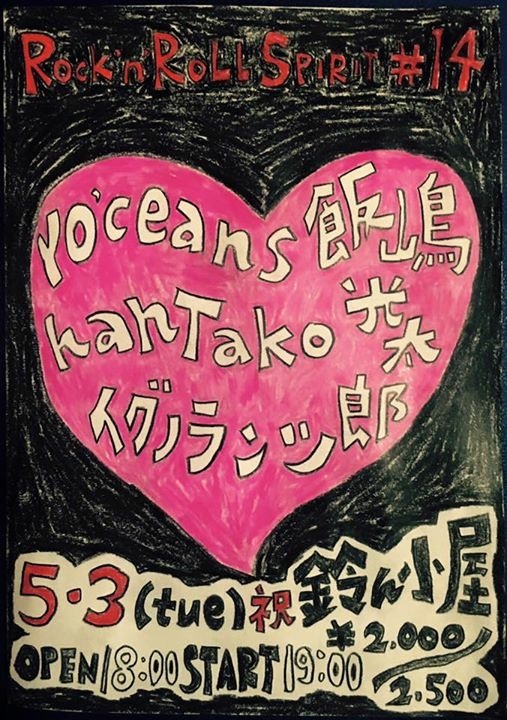 Rock'n'Roll Spirit #14
yo'ceans
hanTako
イグノランツ
飯嶋
光太
郎
5・3(tue)祝
鈴ん小屋
OPEN18:00 START19:00
¥2.000/2.500